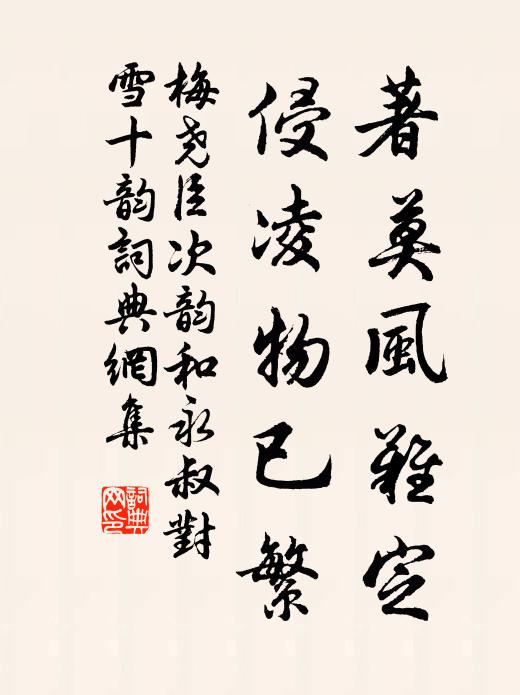 著莫風難定
侵凌物已繁
梅尧臣次韵和永叔對
雪十韵詞典網集
詞典網印